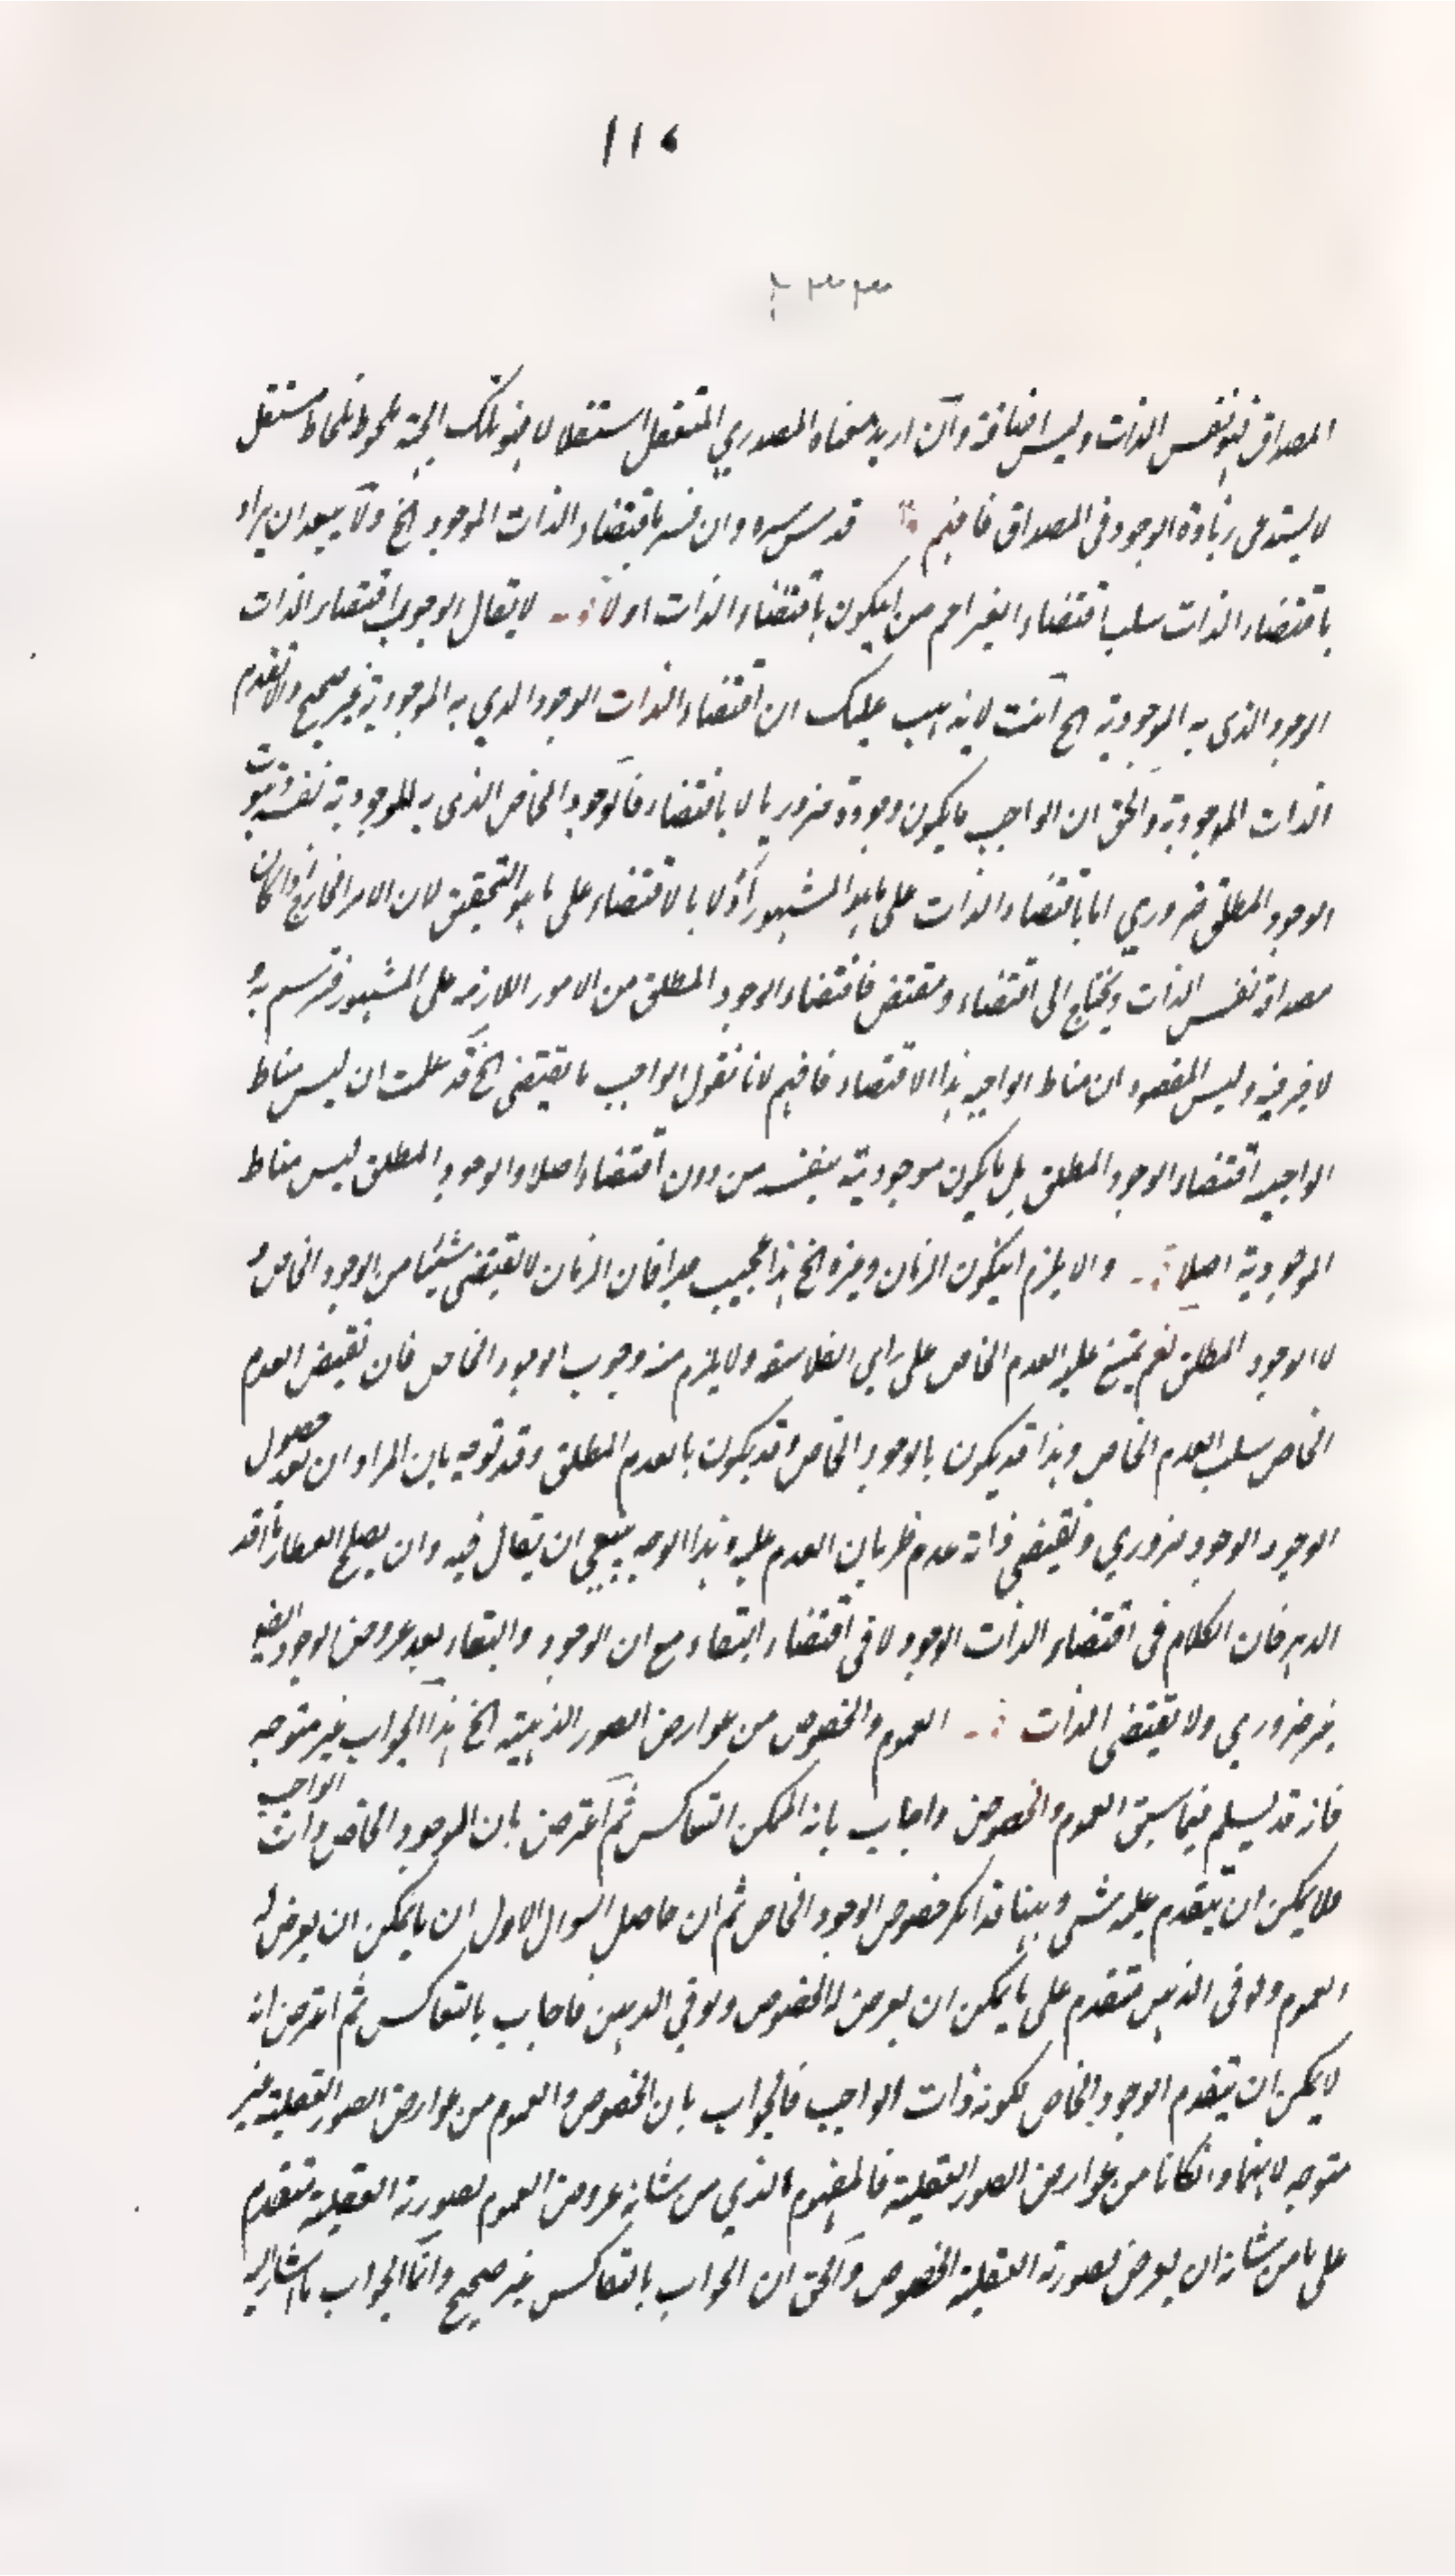 ١١٤
المصداق فهو نفس الذات وليس اضافة وآن اريد معناه المصدري المتعقل استقلالا فهو بتلك الجهة ملحوظ بلحاظ مستقل
لا يستدعى زيادة الوجود فى المصداق فافهم قدس سره وان فسر باقتضاء الذات الوجود الخ ولا يبعد ان يراد
باقتضاء الذات سلب اقتضاء الغير اعم من ايكون باقتضاء الذات او لا لا يقال الوجوب اقتضاء الذات
الوجود الذى به الموجودية الخ آنت لا يذهب عليك ان اقتضاء الذات الوجود الذي به الموجودية غير صحيح والا لتقدم
الذات الموجودية والحق ان الواجب ما يكون وجوده ضروريا لا باقتضاء فالوجود الخاص الذى به الموجودية نفسه وثبوت
الوجود المطلق ضروري اما باقتضاء الذات على ما هو المشهور آو لا بالاقتضاء على ما هو التحقيق لان الامر الخارج اذا كان
مصداقه نفس الذات لا يحتاج الى اقتضاء ومقتض فاقتضاء الوجود المطلق من الامور اللازمة على المشهور فترسم به و
لا خير فيه وليس المقصود ان مناط الواجبية هذا الاقتضاء فافهم لانا نقول الواجب ما يقتضى الخ قد علمت ان ليس مناط
الواجبية اقتضاء الوجود المطلق بل ما يكون موجودية بنفسه من دون اقتضاء اصلا والوجود المطلق ليس مناط
الموجودية اصلا والا يلزم ايكون الزمان وغيره الخ هذا عجيب جدا فان الزمان لا يقتضى شيئا من الوجود الخاص و
لا الوجود المطلق نعم يمتنع عليه العدم الخاص على راي الفلاسفة ولا يلزم منه وجوب الوجود الخاص فان نقيض العدم
الخاص سلب العدم الخاص وهذا قد يكون بالوجود الخاص وقد يكون بالعدم المطلق وقد توجه بان المراد ان بعد حصول
الوجود الوجود ضروري ويقتضى ذاته عدم طريان العدم عليه وهذا الوجه ينبغي ان يقال فيه وان يصلح العطار ما افسد
الدهر فان الكلام فى اقتضاء الذات الوجود لا فى اقتضاء البقاء مع ان الوجود والبقاء بعد عروض الوجود ايضا
غير ضروري ولا يقتضى الذات العموم والخصوص من عوارض الصور الذهنية الخ هذا الجواب غير متوجه
فانه قد يسلم فيما سبق العموم والخصوص واجاب بانه المكن التعاكس ثم آعترض بان الوجود الخاص ذات الواجب
فلا يمكن ان يتقدم عليه شى وهينا قد انكر خصوص الوجود الخاص ثم ان حاصل السوال الاول ان ما يمكن ان يعرض له
العموم ولو فى الذهن متقدم على ما يمكن ان يعرض له الخصوص ولو فى الذهن فاجاب بالتعاكس ثم اعترض انه
لا يمكن ان يتقدم الوجود الخاص لكونه ذات الواجب فالجواب بان الخصوص والعموم من عوارض الصور العقلية غير
متوجه لانهما وانكانا من عوارض الصور العقلية فالمفهوم الذي من شانه عروض العموم لصورته العقلية متقدم
على ما من شانه ان يعرض لصورته العقلية الخصوص وآلحق ان الجواب بالتعاكس غير صحيح وانما الجواب ما اشار اليه